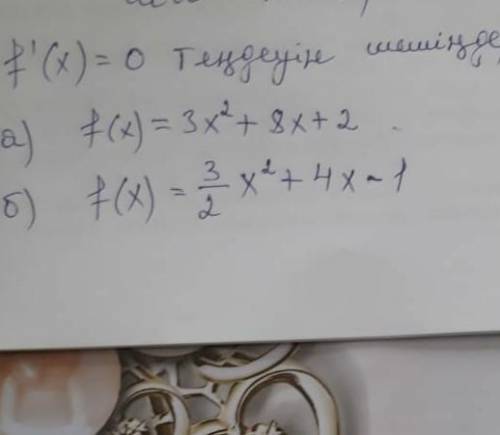 f'(x) = 0 теңдеуін шешіңде
а) f(x) = 3x² + 8x + 2
б) f(x) = 3/2 x² + 4x - 1